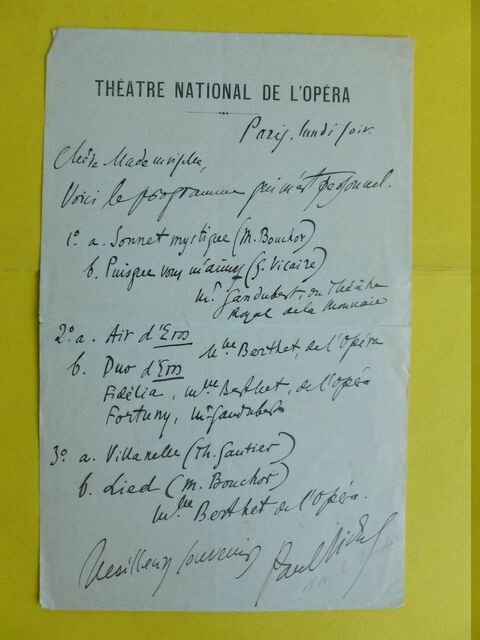 THÉÂTRE NATIONAL DE L'OPÉRA
Paris. lundi soir.
Chère Mademoiselle,
Voici le programme qui m'est personnel.
1º a. Sonnet mystique (M. Bouchor)
b. Puisque vous m'aimez (G. Vicaire)
Mr Gandubert, du Théâtre
Royal de la Monnaie
2º a. Air d'Eros
Mlle Berthet, de l'Opéra
b. Duo d'Eros
Fidélia, Mlle Berthet, de l'Opéra
Fortuny, Mr Gandubert
3º a. Villanelle (Th. Gautier)
b. Lied (M. Bouchor)
Mlle Berthet de l'Opéra.
Meilleurs souvenirs
Paul Vidal